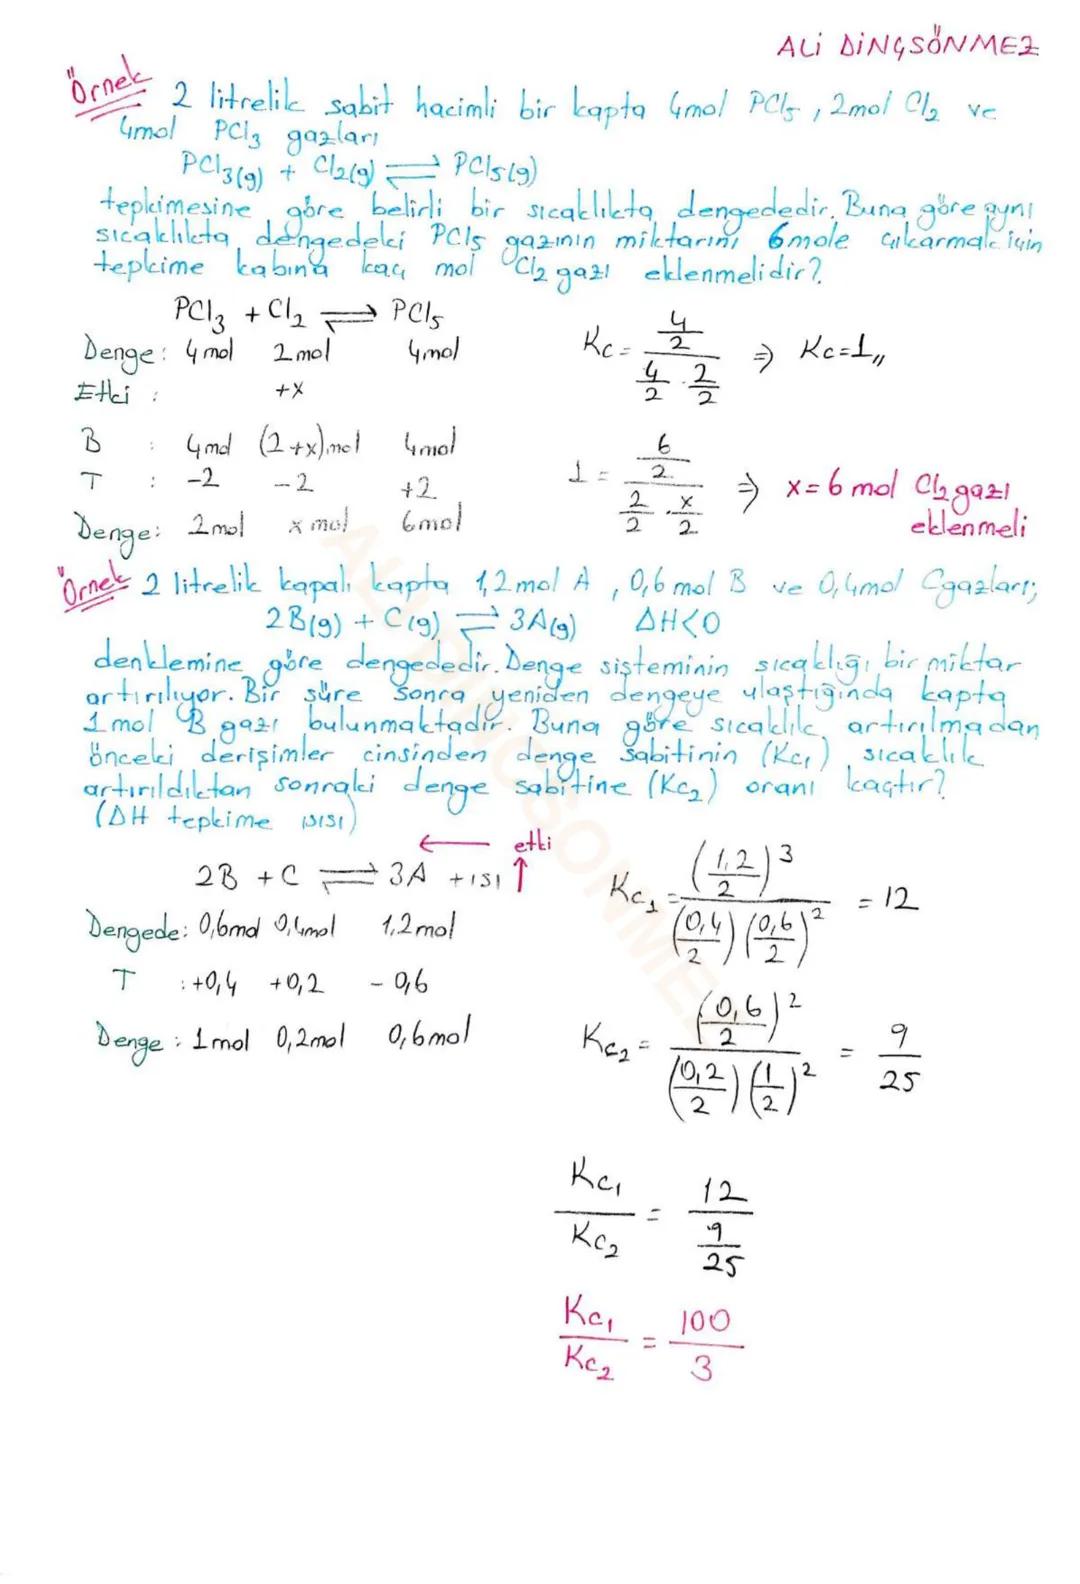 ALİ DİNÇSÖNMEZ
Örnek 2 litrelik sabit hacimli bir kapta 4mol PCl₅, 2mol Cl₂ ve
4mol PCl₃ gazları
PCl₃(g) + Cl₂(g) ⇌ PCl₅(g)
tepkimesine göre belirli bir sıcaklıkta dengededir. Buna göre aynı
sıcaklıkta dengedeki PCl₅ gazının miktarını 6mole çıkarmak için
tepkime kabına kaç mol Cl₂ gazı eklenmelidir?
PCl₃ + Cl₂ ⇌ PCl₅
Denge: 4mol 2mol 4mol
Etki : +x
B : 4mol (2+x)mol 4mol
T : -2 -2 +2
Denge: 2mol x mol 6mol
Kc = (4/2) / (4/2 · 2/2) ⇒ Kc=1,,
1 = (6/2) / (2/2 · x/2) ⇒ x=6 mol Cl₂ gazı
eklenmeli
Örnek 2 litrelik kapalı kapta 1,2mol A, 0,6mol B ve 0,4mol C gazları;
2B(g) + C(g) ⇌ 3A(g) ΔH<0
denklemine göre dengededir. Denge sisteminin sıcaklığı bir miktar
artırılıyor. Bir süre sonra yeniden dengeye ulaştığında kapta
1mol B gazı bulunmaktadır. Buna göre sıcaklık artırılmadan
önceki derişimler cinsinden denge sabitinin (Kc₁) sıcaklık
artırıldıktan sonraki denge sabitine (Kc₂) oranı kaçtır?
(ΔH tepkime ısısı)
← etki
2B + C ⇌ 3A + ısı ↑
Dengede: 0,6mol 0,4mol 1,2mol
T : +0,4 +0,2 - 0,6
Denge : 1mol 0,2mol 0,6mol
Kc₁ = (1,2/2)³ / (0,4/2)(0,6/2)² = 12
Kc₂ = (0,6/2)² / (0,2/2)(1/2)² = 9/25
Kc₁/Kc₂ = 12/(9/25)
Kc₁/Kc₂ = 100/3
ALİ DİNÇSÖNMEZ